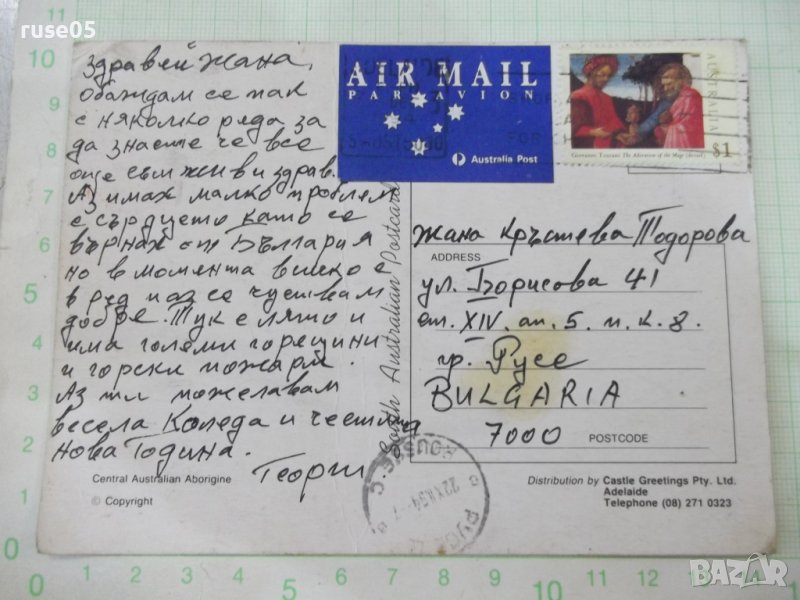 ruse05
Здравей Жана,
обаждам се пак
с няколко реда за
да знаете че все
още съм жив и здрав.
Аз имах малко проблем
с сърдцето като се
върнах от България
но в момента всичко е
в ред и аз се чуствам
добре. Тук е лято и
има големи горещини
и горски пожари.
Аз ти пожелавам
весела Коледа и честита
Нова Година.
Георги.
Central Australian Aborigine
© Copyright
South Australian Postcard
AIR MAIL
PAR AVION
Australia Post
AUSTRALIA
$1
Giovanni Toscani The Adoration of the Magi (detail)
Жана Кръстева Тодорова
ADDRESS
ул. Борисова 41
ет. XIV. ап. 5. п.к. 8.
гр. Русе
BULGARIA
7000
POSTCODE
Distribution by Castle Greetings Pty. Ltd.
Adelaide
Telephone (08) 271 0323
ROUSSE
РУСЕ
BAZAR
11
10
9
8
7
6
5
4
3
2
1
0
0 1 2 3 4 5 6 7 8 9 10 11 12 13
5
10